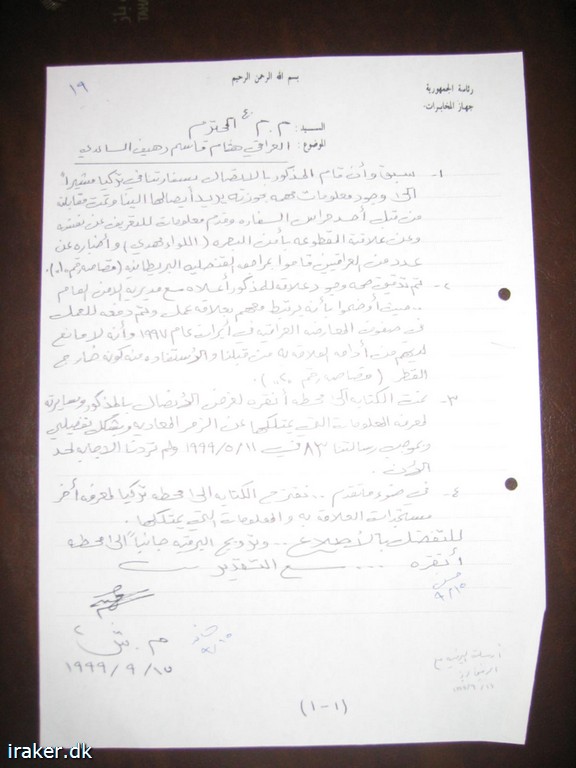 بسم الله الرحمن الرحيم
رئاسة الجمهورية
جهاز المخابرات
١٩
السيد : م.م.٤ المحترم
الموضوع : العراقي هشام قاسم رهيف الساعدي
١- سبق وأن قام المذكور بالاتصال بسفارتنا في تركيا مشيراً
الى وجود معلومات مهمه بحوزته يريد أيصالها الينا وتمت مقابلته
من قبل أحد حراس السفاره وقدم معلومات للتعريف عن نفسه
وعن علاقته المقطوعه بأمن البصره (اللواء مهدي) وأخباره عن
عدد من العراقيين قاموا بمراجعة القنصليه البريطانيه (قصاصه رقم ٠١).
٢- تم تدقيق صحه وجود علاقه للمذكور أعلاه مع مديرية الأمن العام
.. حيث أوضحوا بأنه يرتبط معهم بعلاقه عمل وتم دفعه للعمل
في صفوف المعارضه العراقيه في ايران عام ١٩٩٧ وأنه لا مانع
لديهم من أدامه العلاقه به من قبلنا والاستفاده منه كونه خارج
القطر (قصاصه رقم ٠٢).
٣- تمت الكتابه الى محطه أنقره لغرض الاتصال بالمذكور ومسايرته
لمعرفه المعلومات التي يمتلكها عن الزمر المعاديه وبشكل تفصيلي
وبموجب رسالتنا ٨٣ في ١٩٩٩/٥/١١ ولم تردنا الاجابه لحد
الآن .
٤- في ضوء ما تقدم .. نقترح الكتابه الى محطه تركيا لمعرفه أخر
مستجدات العلاقه به والمعلومات التي يمتلكها .
للتفضل بالاطلاع ... وترويج البرقيه جانباً الى محطه
أنقره .... مع التقدير
٩/١٥
١٩٩٩/٩/١٥
(١-١)
iraker.dk